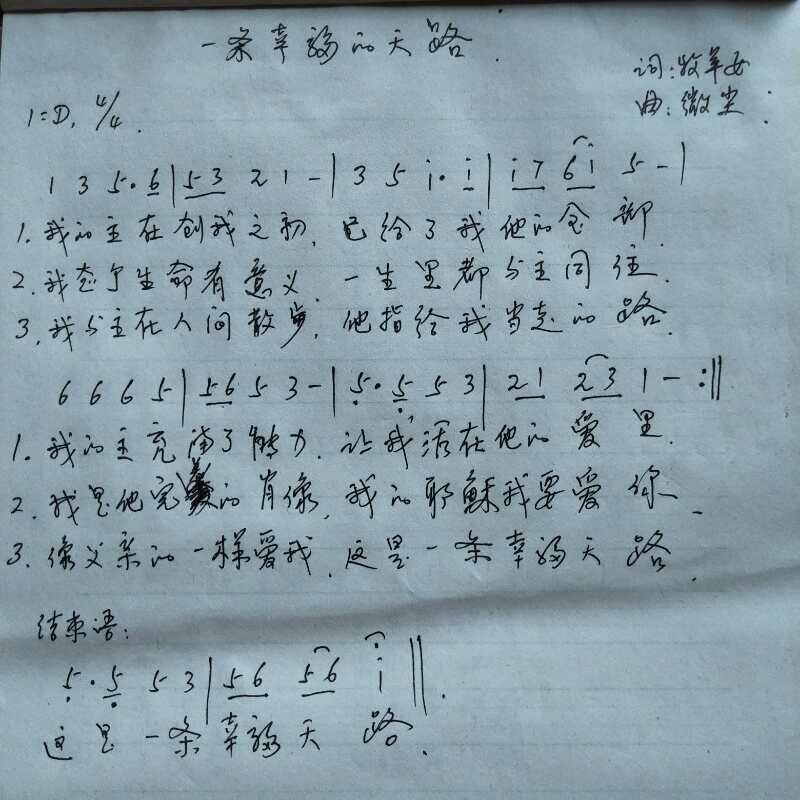 一条幸福的天路.
词:牧羊女
1=D, 4/4.
曲:微尘
1 3 5·6|53 2 1 -|3 5 i·i|i7 6i 5 -|
1.我的主在创我之初,已给了我他的全部.
2.我 生命有意义.一生里都与主同住.
3.我与主在人间散步,他指给我当走的路.
6 6 6 5|56 5 3 -|5·5 5 3|21 23 1 - :||
1.我的主充满了能力.让我活在他的爱里.
2.我是他完美的肖像,我的耶稣我要爱你.
3.像父亲的一样爱我.这是一条幸福天路.
结束语:
5·5 5 3|56 56 i||.
这是一条幸福天路.